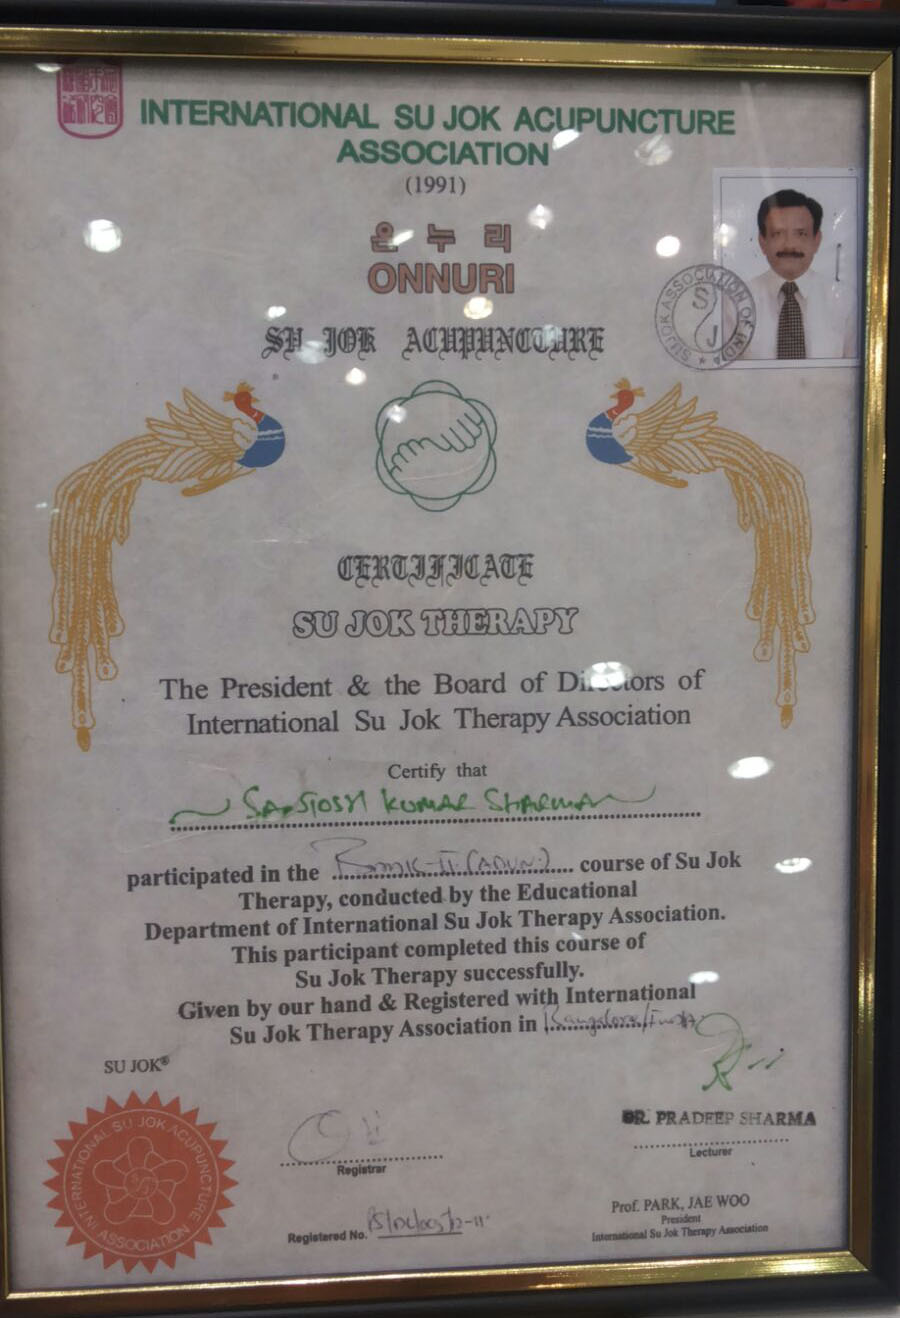 INTERNATIONAL SU JOK ACUPUNCTURE
ASSOCIATION
(1991)
온누리
ONNURI
SU JOK ACUPUNCTURE
SUJOK ASSOCIATION OF INDIA
SJ
CERTIFICATE
SU JOK THERAPY
The President & the Board of Directors of
International Su Jok Therapy Association
Certify that
SANTOSH KUMAR SHARMA
participated in the course of Su Jok
Therapy, conducted by the Educational
Department of International Su Jok Therapy Association.
This participant completed this course of
Su Jok Therapy successfully.
Given by our hand & Registered with International
Su Jok Therapy Association in Bangalore/India
SU JOK®
INTERNATIONAL SU JOK ACUPUNCTURE
ASSOCIATION
Registrar
Registered No.
DR. PRADEEP SHARMA
Lecturer
Prof. PARK, JAE WOO
President
International Su Jok Therapy Association